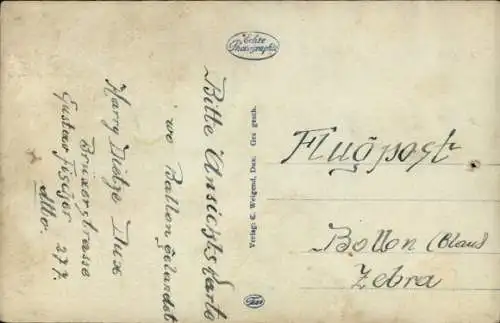 Echte
Photographie
Bitte Ansichtskarte
wo Ballon gelandet
Harry Dietze Dux
Brüxerstrasse
Gustav Fischer 277.
Verlag: C. Weigend, Dux. Ges gesch.
Flugpost
Bollon (Blau)
Zebra